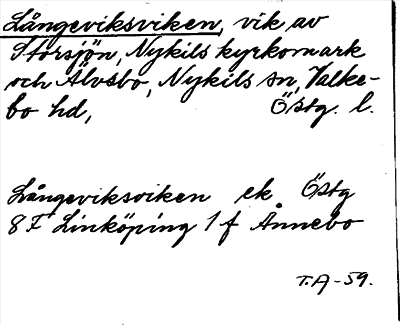 Långeviksviken, vik av
Storsjön, Nykils kyrkomark
och Älvsbo, Nykils sn, Valke-
bo hd, Östg. l.
Långeviksviken ek. Östg
8 F Linköping 1 f Ånnebo
T.A-59.